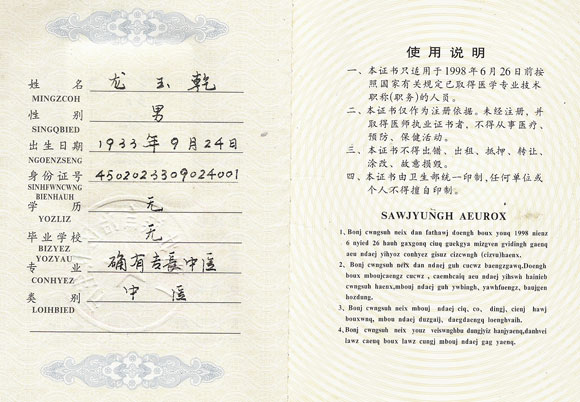 姓 名 龙玉乾
MINGZCOH
性 别 男
SINGQBIED
出生日期 1933年9月24日
NGOENZSENG
身份证号 4502023309024001
SINHFWNCWNG
BIENHAUH
学 历 无
YOZLIZ
毕业学校 无
BIZYEZ
YOZYAU
专 业 确有专長中医
CONHYEZ
类 别 中医
LOIHBIED
使用说明
一、本证书只适用于1998年6月26日前按
照国家有关规定已取得医学专业技术
职称(职务)的人员。
二、本证书仅作为注册依据。未经注册，并
取得医师执业证书者，不得从事医疗、
预防、保健活动。
三、本证书不得出错、出租、抵押、转让、
涂改、故意损毁。
四、本证书由卫生部统一印制，任何单位或
个人不得擅自印制。
SAWJYUNGH AEUROX
1、Bonj cwngsuh neix dan fathawj doengh boux youq 1998 nienz
6 nyied 26 hauh gaxgonq ciuq guekgya mizgven gvidingh gaenq
aeu ndaej yihyoz conhyez gisuz cizcwngh (cizvu)haenx.
2、Bonj cwngsuh neix dan ndaej guh cucwz baengzgawq.Doengh
boux mboujcaengz cucwz , caemhcaiq aeu ndaej yihswh hainieb
cwngsuh haenx,mbouj ndaej guh ywbingh, yawhfuengz, baujgen
hozdung.
3、Bonj cwngsuh neix mbouj ndaej ciq, co, dingj, cienj hawj
bouxwnq, mbou ndaej duzgaij, daegdaengq loenghvaih.
4、Bonj cwngsuh neix youz veiswnghbu dungjyiz hanjyaenq,danhvei
lawz caeuq boux lawz cungj mbouj ndaej gag yaenq.